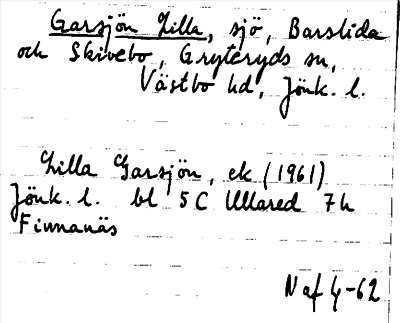 Garsjön Lilla, sjö, Barslida
och Skivebo, Gryteryds sn,
Västbo hd, Jönk. l.
Lilla Garsjön, ek (1961)
Jönk. l. bl 5C Ullared 7h
Finnanäs
N af 4-62